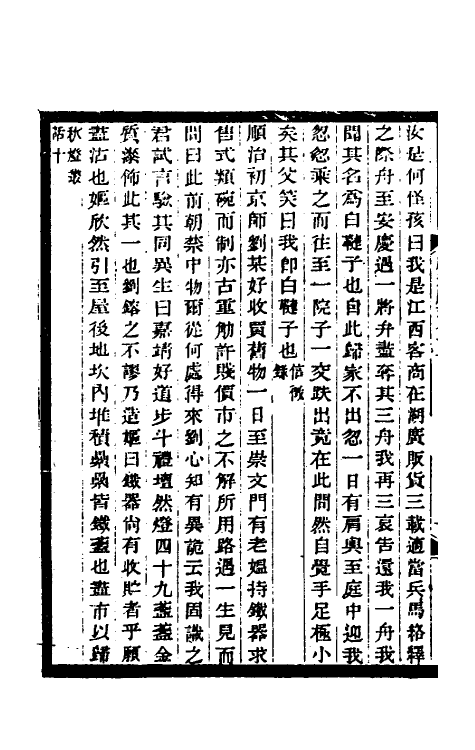 汝是何怪孩曰我是江西客商在湖廣販貨三載適當兵馬絡繹
之際舟至安慶過一將弁盡奪其三舟我再三哀吿還我一舟我
聞其名爲白韃子也自此歸家不出忽一日有肩輿至庭中迎我
忽忽乘之而往至一院子一交跌出竟在此問然自覺手足極小
矣其父笑曰我卽白韃子也信徵錄
順治初京師劉某好收買舊物一日至崇文門有老媼持鐵器求
售式類碗而制亦古重觔許賤價市之不解所用路過一生見而
問曰此前朝禁中物爾從何處得來劉心知有異詭云我固識之
君試言驗其同異生曰嘉靖好道步斗禮壇然燈四十九盞盞金
質漆佈此其一也劉鎔之不謬乃造嫗曰鐵器尙有收貯者乎願
盡沽也嫗欣然引至屋後地坎內堆積纍纍皆鐵盞也盡市以歸
秋燈叢
話十